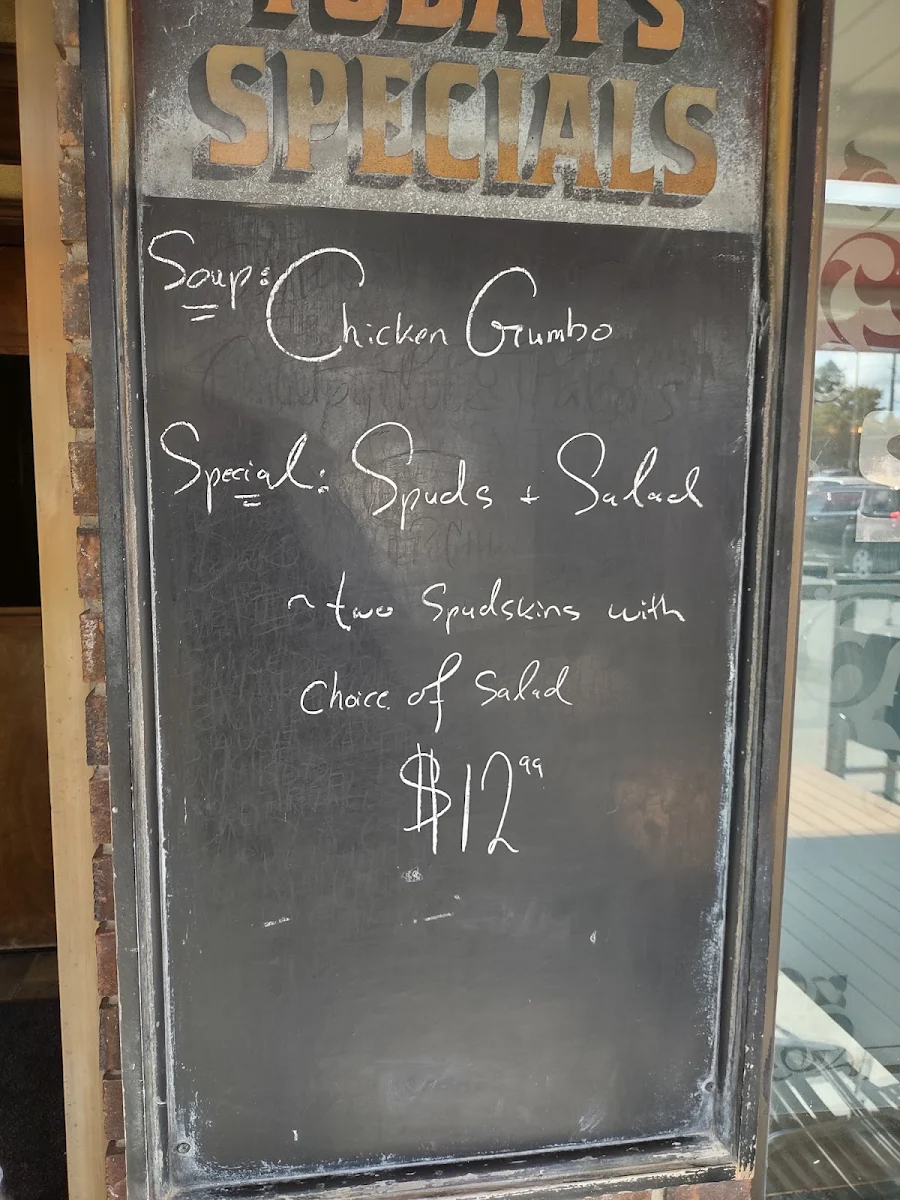 TODAY'S
SPECIALS
Soup: Chicken Gumbo
Special: Spuds + Salad
~ two Spudskins with
Choice of Salad
$12.99